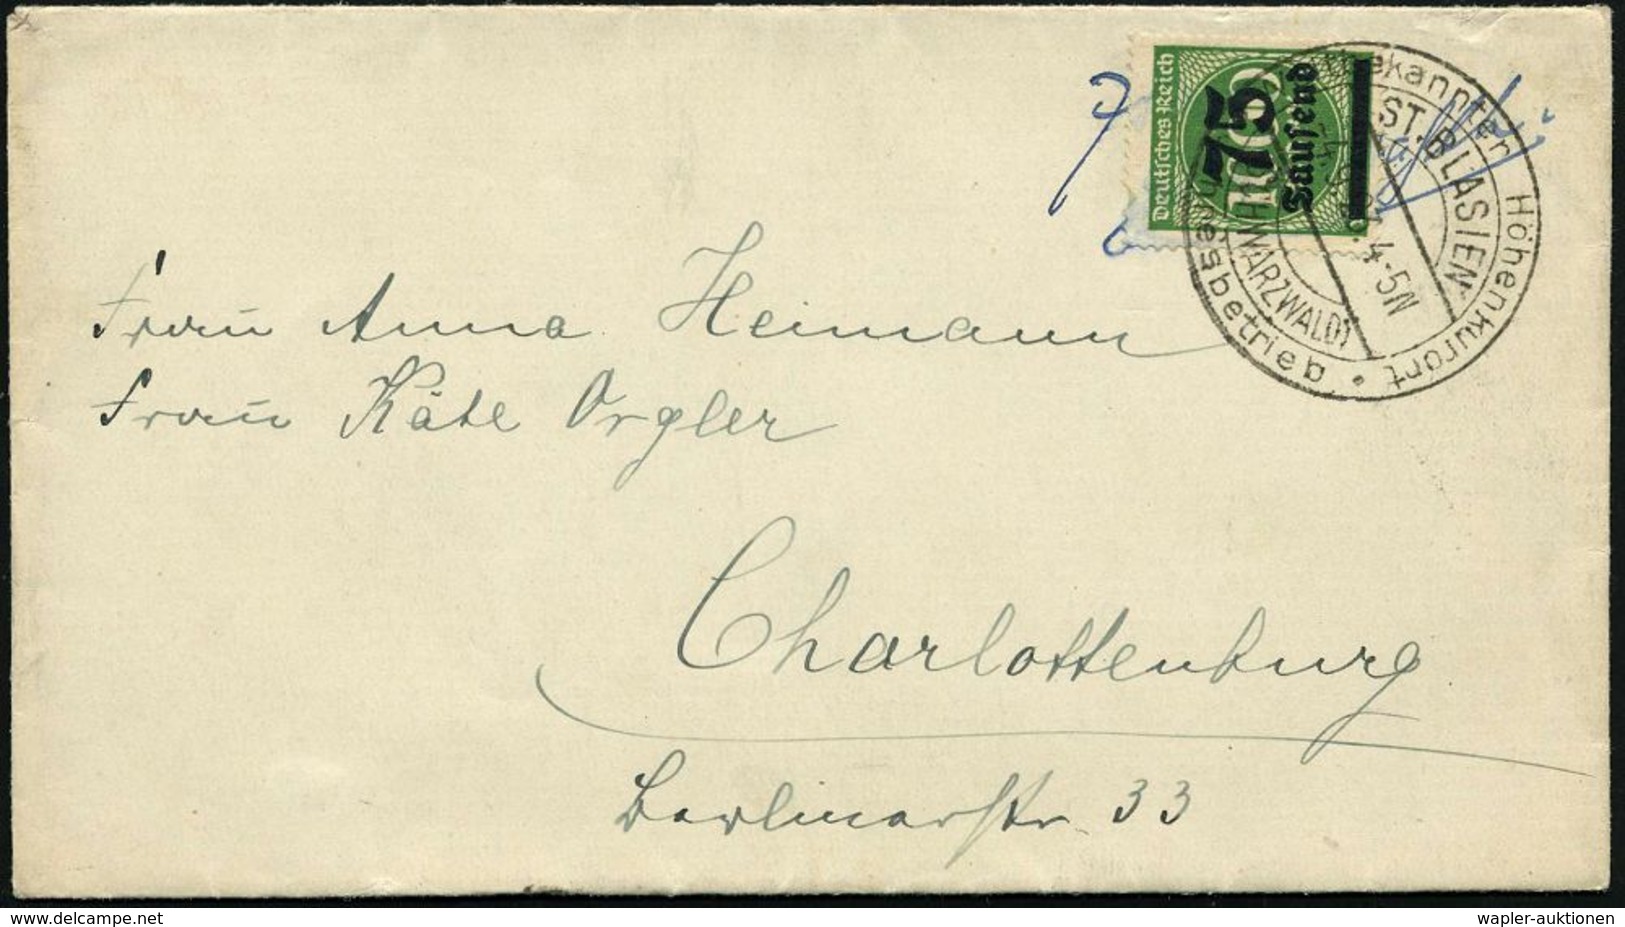 Deutsches Reich
1000
75
Tausend
bekannter Höhenkurort • Jahresbetrieb
ST. BLASIEN
4-5N
(SCHWARZWALD)
7
Frau Anna Heimann
Frau Käte Orgler
Charlottenburg
Berlinerstr. 33
www.delcampe.net
wapler-auktionen